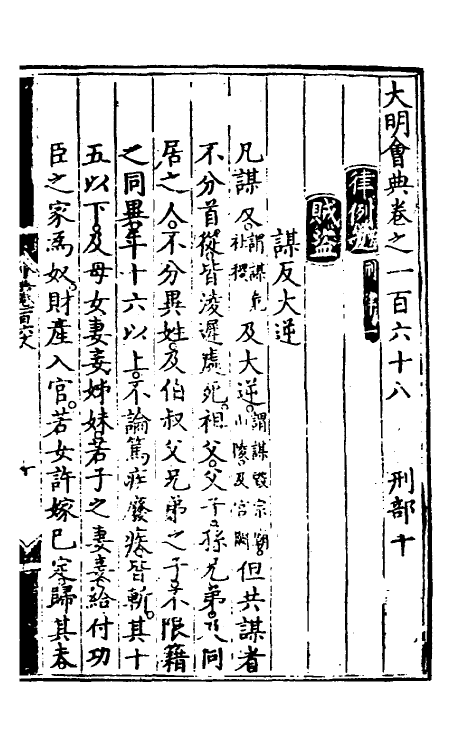 大明會典卷之一百六十八　刑部十
律例九　刑律一
賊盜
謀反大逆
凡謀反謂謀危社稷及大逆謂謀毀宗廟山陵及宮闕但共謀者
不分首從皆淩遲處死祖父父子孫兄弟及同
居之人不分異姓及伯叔父兄弟之子不限籍
之同異年十六以上不論篤疾廢疾皆斬其十
五以下及母女妻妾姊妹若子之妻妾給付功
臣之家爲奴財產入官若女許嫁已定歸其夫